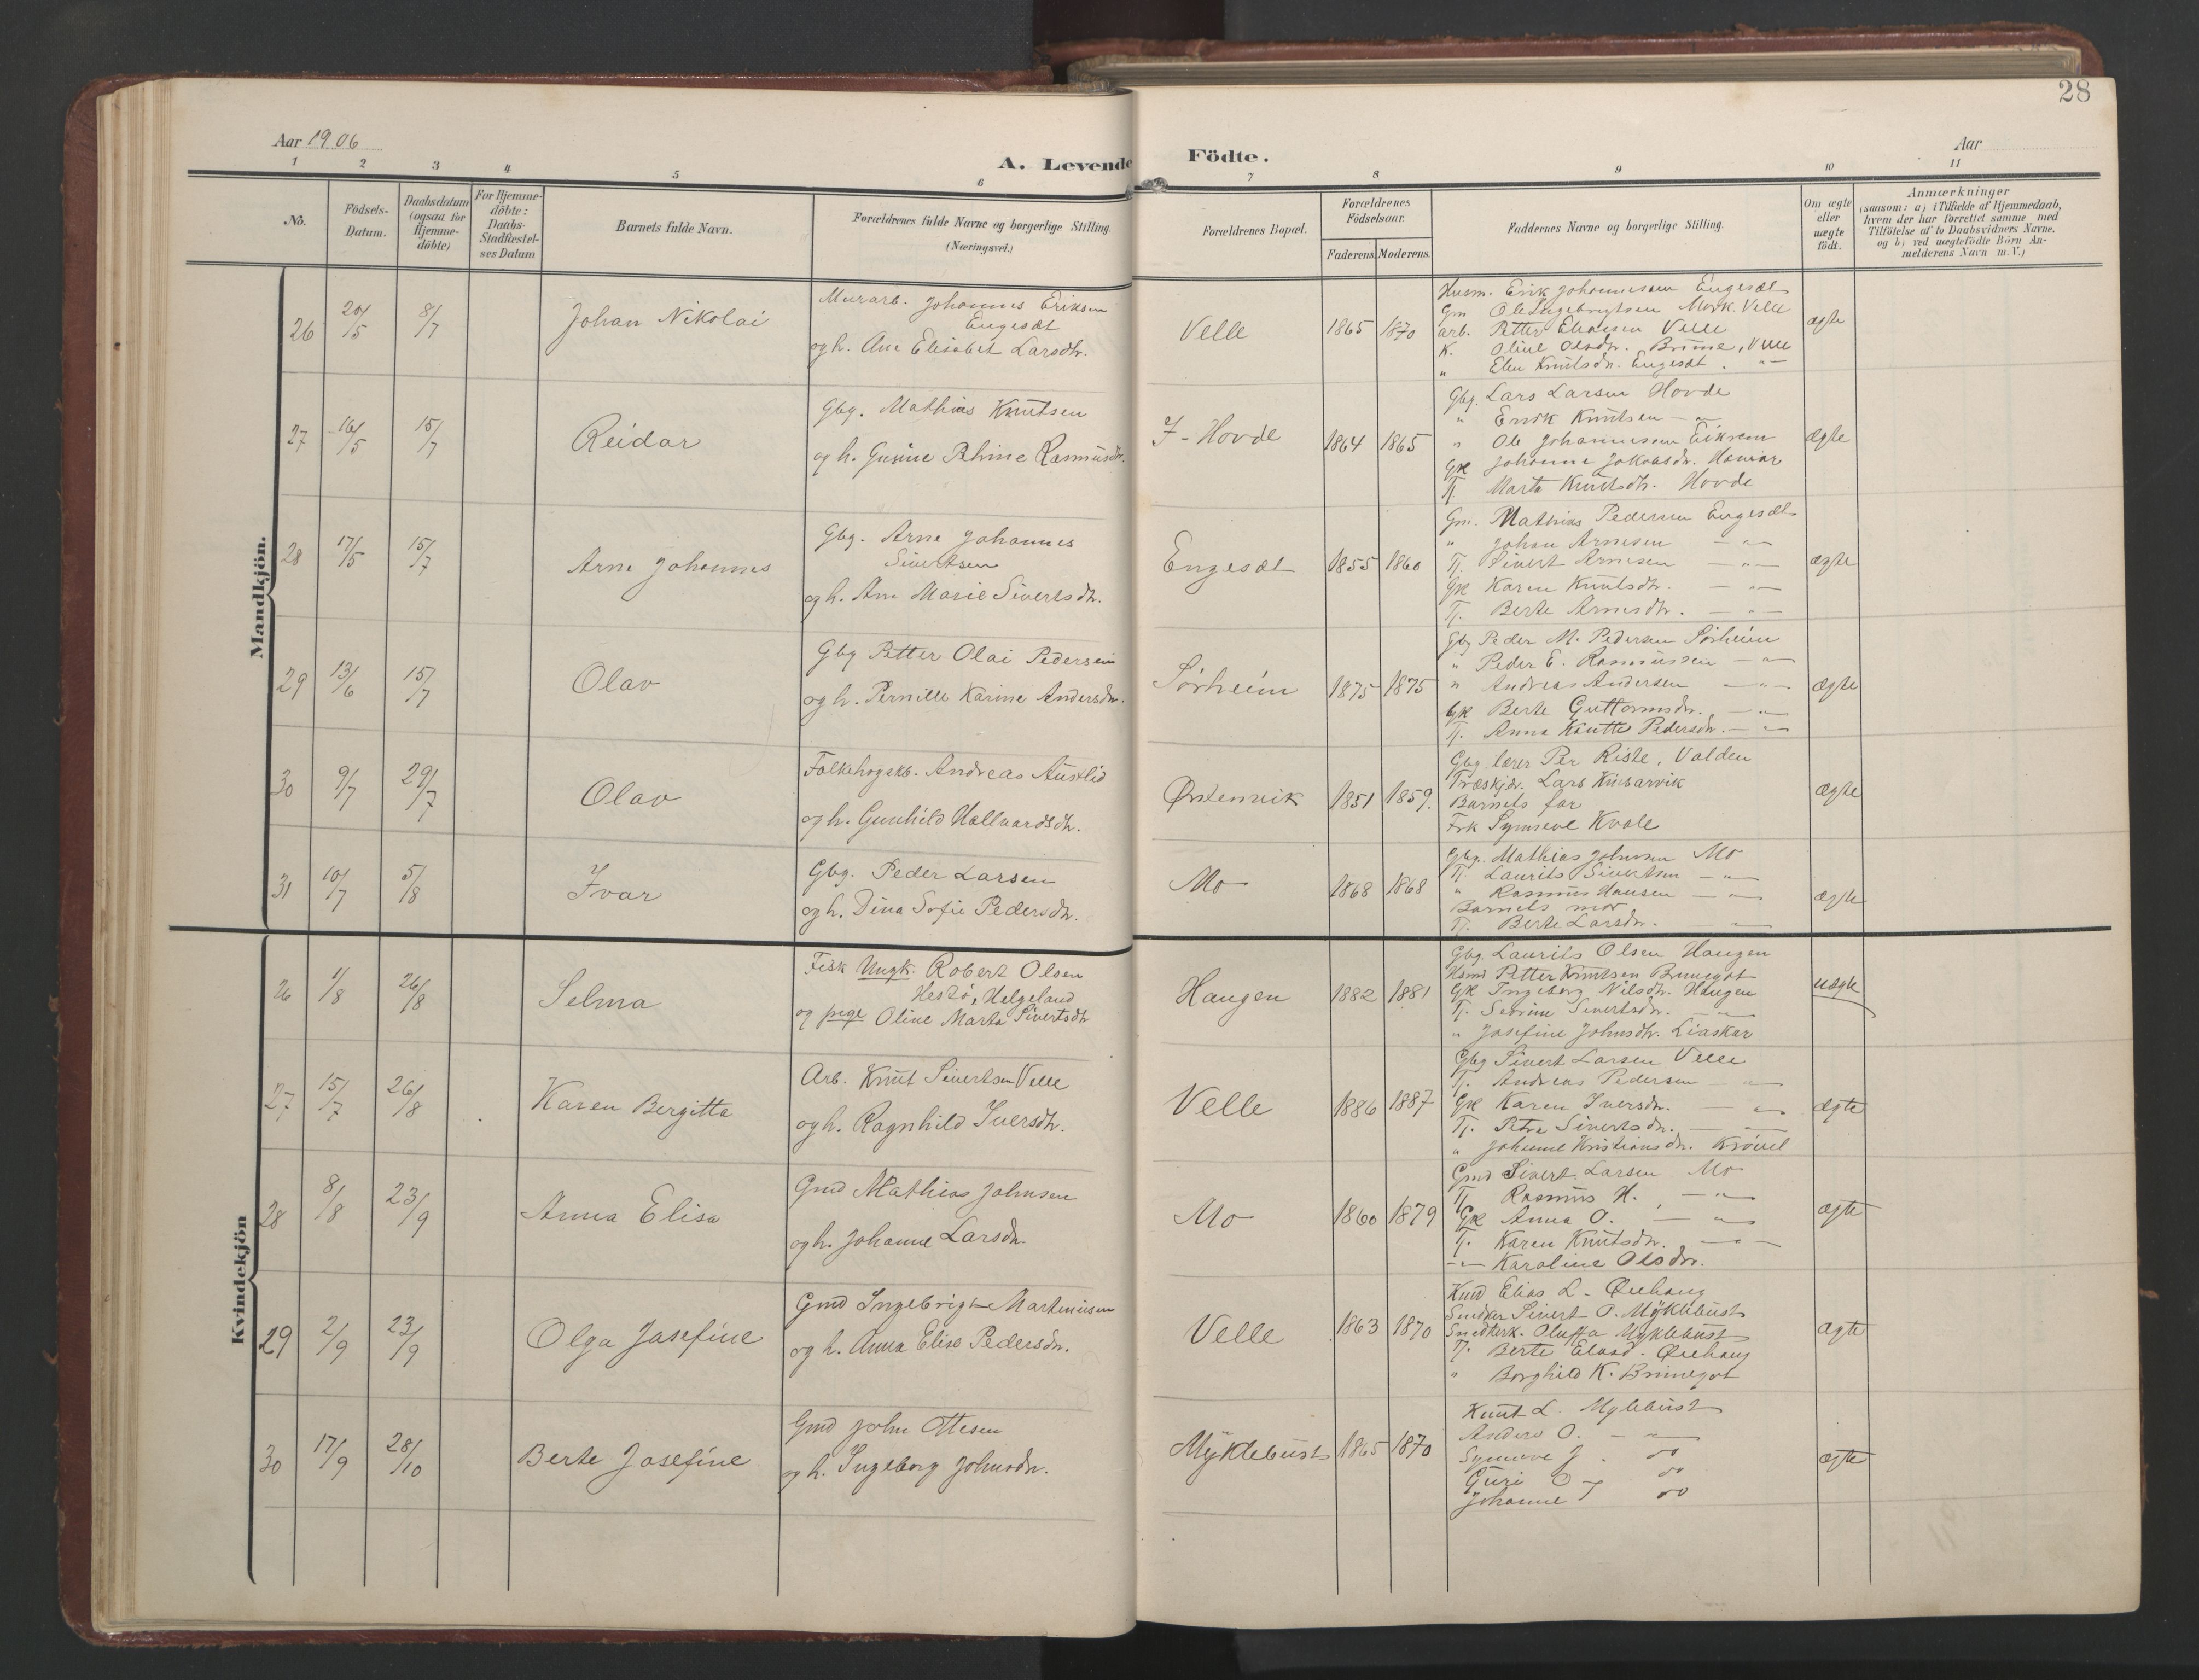 28
Aar 1906
Aar
A. Levende Födte.
1 2 3 4 5 6 7 8 9 10 11
No.
Födsels-
Datum.
Daabsdatum
(ogsaa for
Hjemme-
döbte)
For Hjemme-
döbte:
Daabs-
Stadfæstel-
ses Datum
Barnets fulde Navn.
Forældrenes fulde Navne og borgerlige Stilling.
(Næringsvei.)
Forældrenes Bopæl.
Forældrenes
Födselsaar.
Faderens. Moderens.
Faddernes Navne og borgerlige Stilling.
Om ægte
eller
uægte
födt.
Anmærkninger
(saasom: a) i Tilfælde af Hjemmedaab,
hvem der har forrettet samme med
Tilföielse af to Daabsvidners Navne,
og b) ved uægtefödte Börn An-
melderens Navn m.V.)
Mandkjön.
26 20/5 8/7 Johan Nikolai
Murarb. Johannes Eriksen
Engesæt
og h. Ane Elisabet Larsdtr.
Velle 1865 1870
Husm. Erik Johannessen Engesæt
Gm Ole Ingebrigtsen Mork. Velle
arb. Petter Eliassen Velle
K. Oline Olsdtr. Brune, Velle
" Elen Knutsdtr. Engesæt. -"-
ægte
27 16/5 15/7 Reidar
Gbg. Mathias Knutsen
og h. Gurine Rasmusdtr.
Y-Hovde 1864 1865
Gbg. Lars Larsen Hovde
" Endk Knutsen -"-
" Ole Johannessen Eikrem
Gk Johanne Jakobsdtr. Hamar
Tj. Marta Knutsdtr. Hovde
ægte
28 17/5 15/7 Arne Johannes
Gbg. Arne Johannes
Sivertsen
og h. Ane Marie Sivertsdtr.
Engesæt 1855 1860
Gm. Mathias Pedersen Engesæt
" Johan Arnesen -"-
Tj. Sivert Arnesen -"-
Gk Karen Knutsdtr. -"-
Tj. Berte Arnesdtr. -"-
ægte
29 13/6 15/7 Olav
Gbg Petter Olai Pedersen
og h. Pernille Karine Andersdtr.
Sørheim 1875 1875
Gbg Peder M. Pedersen Sørheim
" Peder E. Rasmussen -"-
" Andreas Andersen -"-
Gk Berte Guttormsdtr. -"-
Tj. Anna Knutte Pedersdtr. -"-
ægte
30 9/7 29/7 Olav
Folkehogskb. Andreas Austlid
og h. Gunhild Hallvardsdtr.
Ørstenvik 1851 1859.
Gbg lærer Per Riste, Valden
Præskjdr. Lars Kinsarvik
Barnets far
Frk Synneve Kvale
ægte
31 10/7 5/8 Ivar
Gbg. Peder Larsen
og h. Dina Sofie Pedersdtr.
Mo 1868 1868
Gbg. Mathias Johnsen Mo
Tj. Laurits Sivertsen -"-
" Rasmus Hansen -"-
Barnets mor
Tj. Berte Larsdtr. -"-
ægte
Kvindekjön
26 1/8 26/8 Selma
Fisk Ungk. Robert Olsen
Hestø, Helgeland
og pige Oline Marta Sivertsdtr
Haugen 1882 1881
Gbg. Laurits Olsen Haugen
Hsmd Petter Knutsen Brunegot
Gk Ingeborg Nilsdtr. Haugen
Tj. Severine Sivertsdtr. -"-
" Josefine Johnsdtr. Liaskar
uægte
27 15/7 26/8 Karen Bergitta
Arb. Knut Sivertsen Velle
og h. Ragnhild Iversdtr.
Velle 1886 1887
Gbg Sivert Larsen Velle
Tj. Andreas Pedersen "
Gk Karen Iversdtr. -"-
Tj. Petra Sivertsdtr. -"-
" Johanne Kristiansdtr. Krøvel
ægte
28 8/8 23/9 Anna Elisa
Gmd Mathias Johnsen
og h. Johanne Larsdtr.
Mo 1860 1879
Gmd Sivert Larsen Mo
Tj Rasmus H. -"-
Gk Anna O. -"-
Tj. Karen Knutsdtr. -"-
-"- Karoline Olsdtr.
ægte
29 2/9 23/9 Olga Josefine
Gmd Ingebrigt Martinusen
og h. Anna Elisa Pedersdtr.
Velle 1863 1870
Kmd Elias L. Øvehaug
Snedker Sivert O. Myklebust
Snedkerk. Oluffa Myklebust
Tj. Berte Eliasd. Øvehaug
" Borghild K. Brunegot
ægte
30 17/9 28/10 Berte Josefine
Gmd John Ottesen
og h. Ingeborg Johnsdtr.
Myklebust 1865 1870
Knut L. Myklebust
Anders O. -"-
Synneve J. do
Guri O do
Johanne J do
ægte